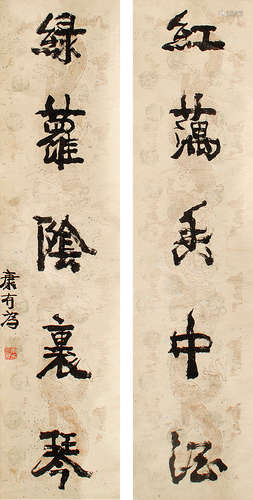 紅藕香中酒
綠蘿陰裏琴
康有為